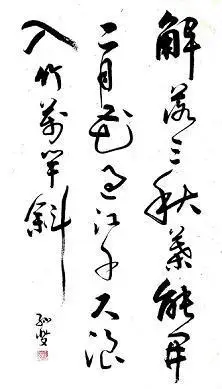 解落三秋葉能開
二月花過江千尺浪
入竹萬竿斜